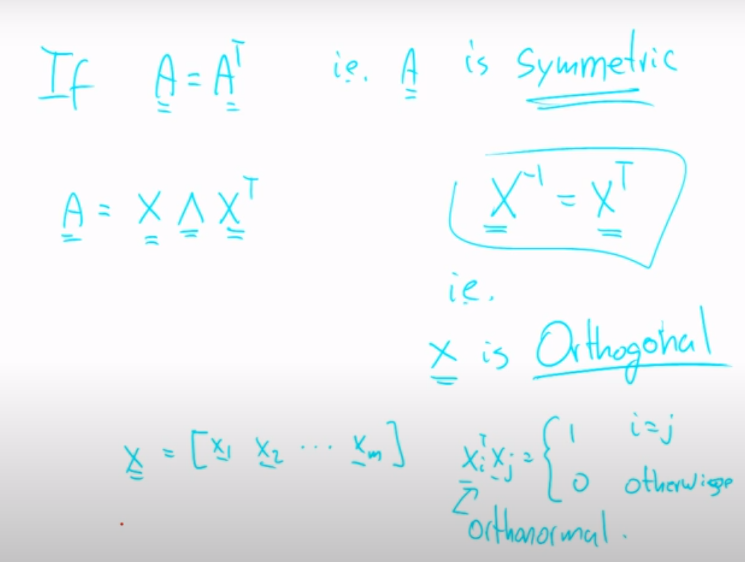 If A = Aᵀ i.e. A is Symmetric
A = X Λ Xᵀ
X⁻¹ = Xᵀ
i.e.
X is Orthogonal
X = [x₁ x₂ ... xₘ]
xᵢᵀxⱼ = { 1 i=j
0 otherwise
orthonormal.